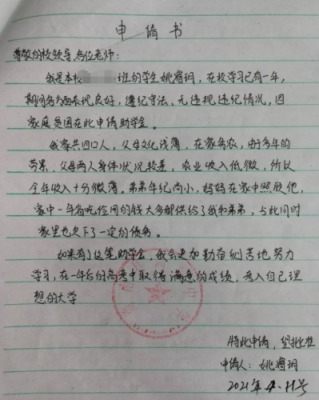 申请书
尊敬的校领导,各位老师:
我是本校 班的学生姚 ,在校学习已有一年,
期间各方面表现良好,遵纪守法,无违规违纪情况,因
家庭原因在此申请助学金。
我家共四口人,父母文化浅薄,在家务农,由于多年的
劳累,父母两人身体状况较差,农业收入低微,所以
全年收入十分微薄,弟弟年纪尚小,妈妈在家中照顾他,
家中一年省吃俭用的钱大多都供给了我和弟弟,与此同时
家里也欠下了一定的债务。
如果有了这笔助学金,我会更加勤奋刻苦地努力
学习,在一年后的高考中取得满意的成绩,考入自己理
想的大学
特此申请,望批准
申请人:姚
2021年4.11号